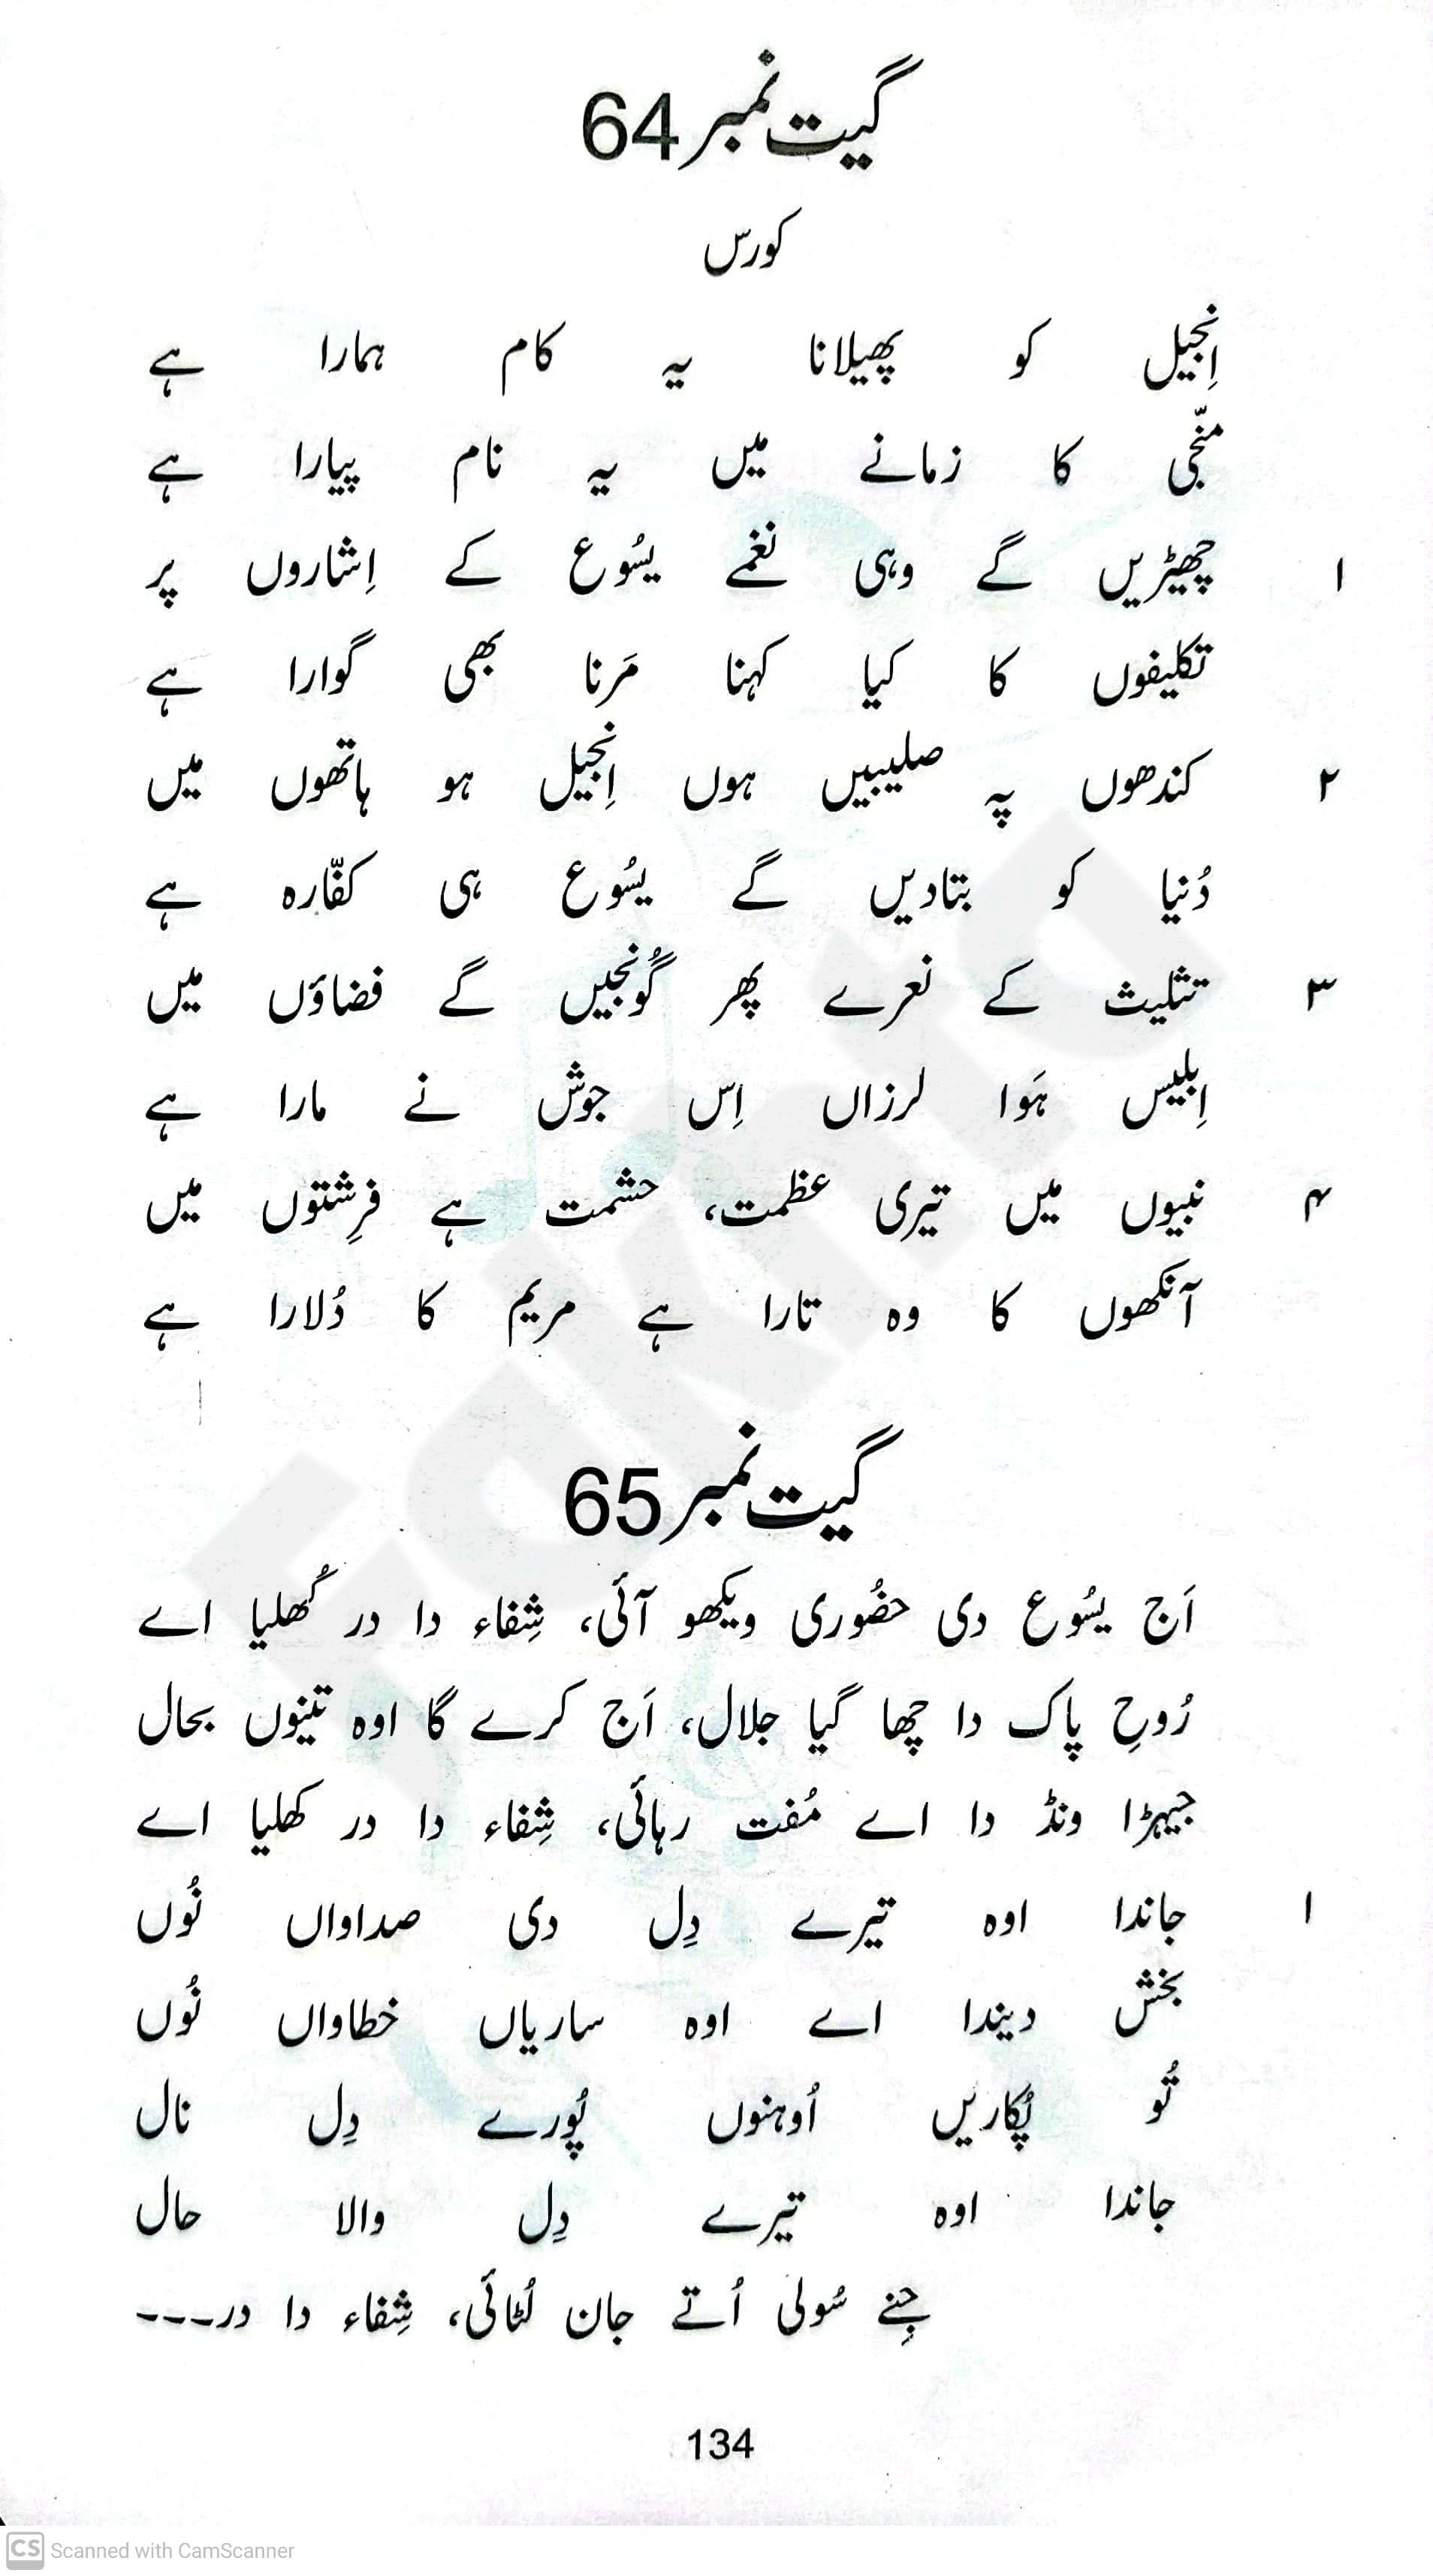 گیت نمبر 64
کورس
اِنجیل کو پھیلانا یہ کام ہمارا ہے
منجّی کا زمانے میں یہ نام پیارا ہے
۱ چھیڑیں گے وہی نغمے یسُوع کے اِشاروں پر
تکلیفوں کا کیا کہنا مَرنا بھی گوارا ہے
۲ کندھوں پہ صلیبیں ہوں اِنجیل ہو ہاتھوں میں
دُنیا کو بتادیں گے یسُوع ہی کفّارہ ہے
۳ تثلیث کے نعرے پھر گُونجیں گے فضاؤں میں
اِبلیس ہَوا لرزاں اِس جوش نے مارا ہے
۴ نبیوں میں تیری عظمت، حشمت ہے فرِشتوں میں
آنکھوں کا وہ تارا ہے مریم کا دُلارا ہے
گیت نمبر 65
اَج یسُوع دی حضُوری ویکھو آئی، شِفاء دا در کُھلیا اے
رُوحِ پاک دا چھا گیا جلال، اَج کرے گا اوہ تینوں بحال
جیہڑا ونڈ دا اے مُفت رہائی، شِفاء دا در کھلیا اے
۱ جاندا اوہ تیرے دِل دی صداواں نُوں
بخش دیندا اے اوہ ساریاں خطاواں نُوں
تُو پُکاریں اُوہنوں پُورے دِل نال
جاندا اوہ تیرے دِل والا حال
جِنے سُولی اُتے جان لُٹائی، شِفاء دا در۔۔۔
134
CS Scanned with CamScanner
Fakhta